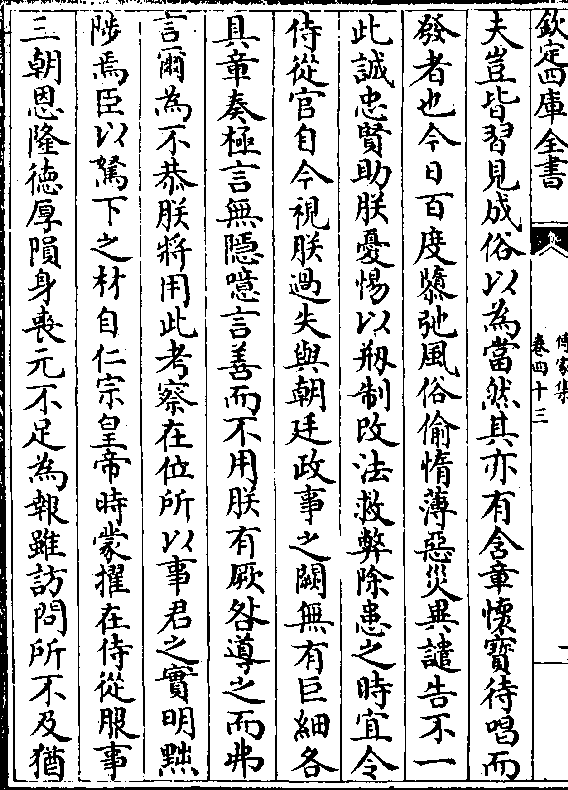 欽定四庫全書
傳家集
卷四十三
夫豈皆習見成俗以為當然其亦有含章懷寶待唱而
發者也今日百度隳弛風俗偷惰薄惡災異譴告不一
此誠忠賢助朕憂惕以剏制改法救弊除患之時宜令
侍從官自今視朕過失與朝廷政事之闕無有巨細各
具章奏極言無隱噫言善而不用朕有厥咎導之而弗
言爾為不恭朕將用此考察在位所以事君之實明黜
陟焉臣以駑下之材自仁宗皇帝時蒙擢在侍從服事
三朝恩隆德厚隕身喪元不足為報雖訪問所不及猶